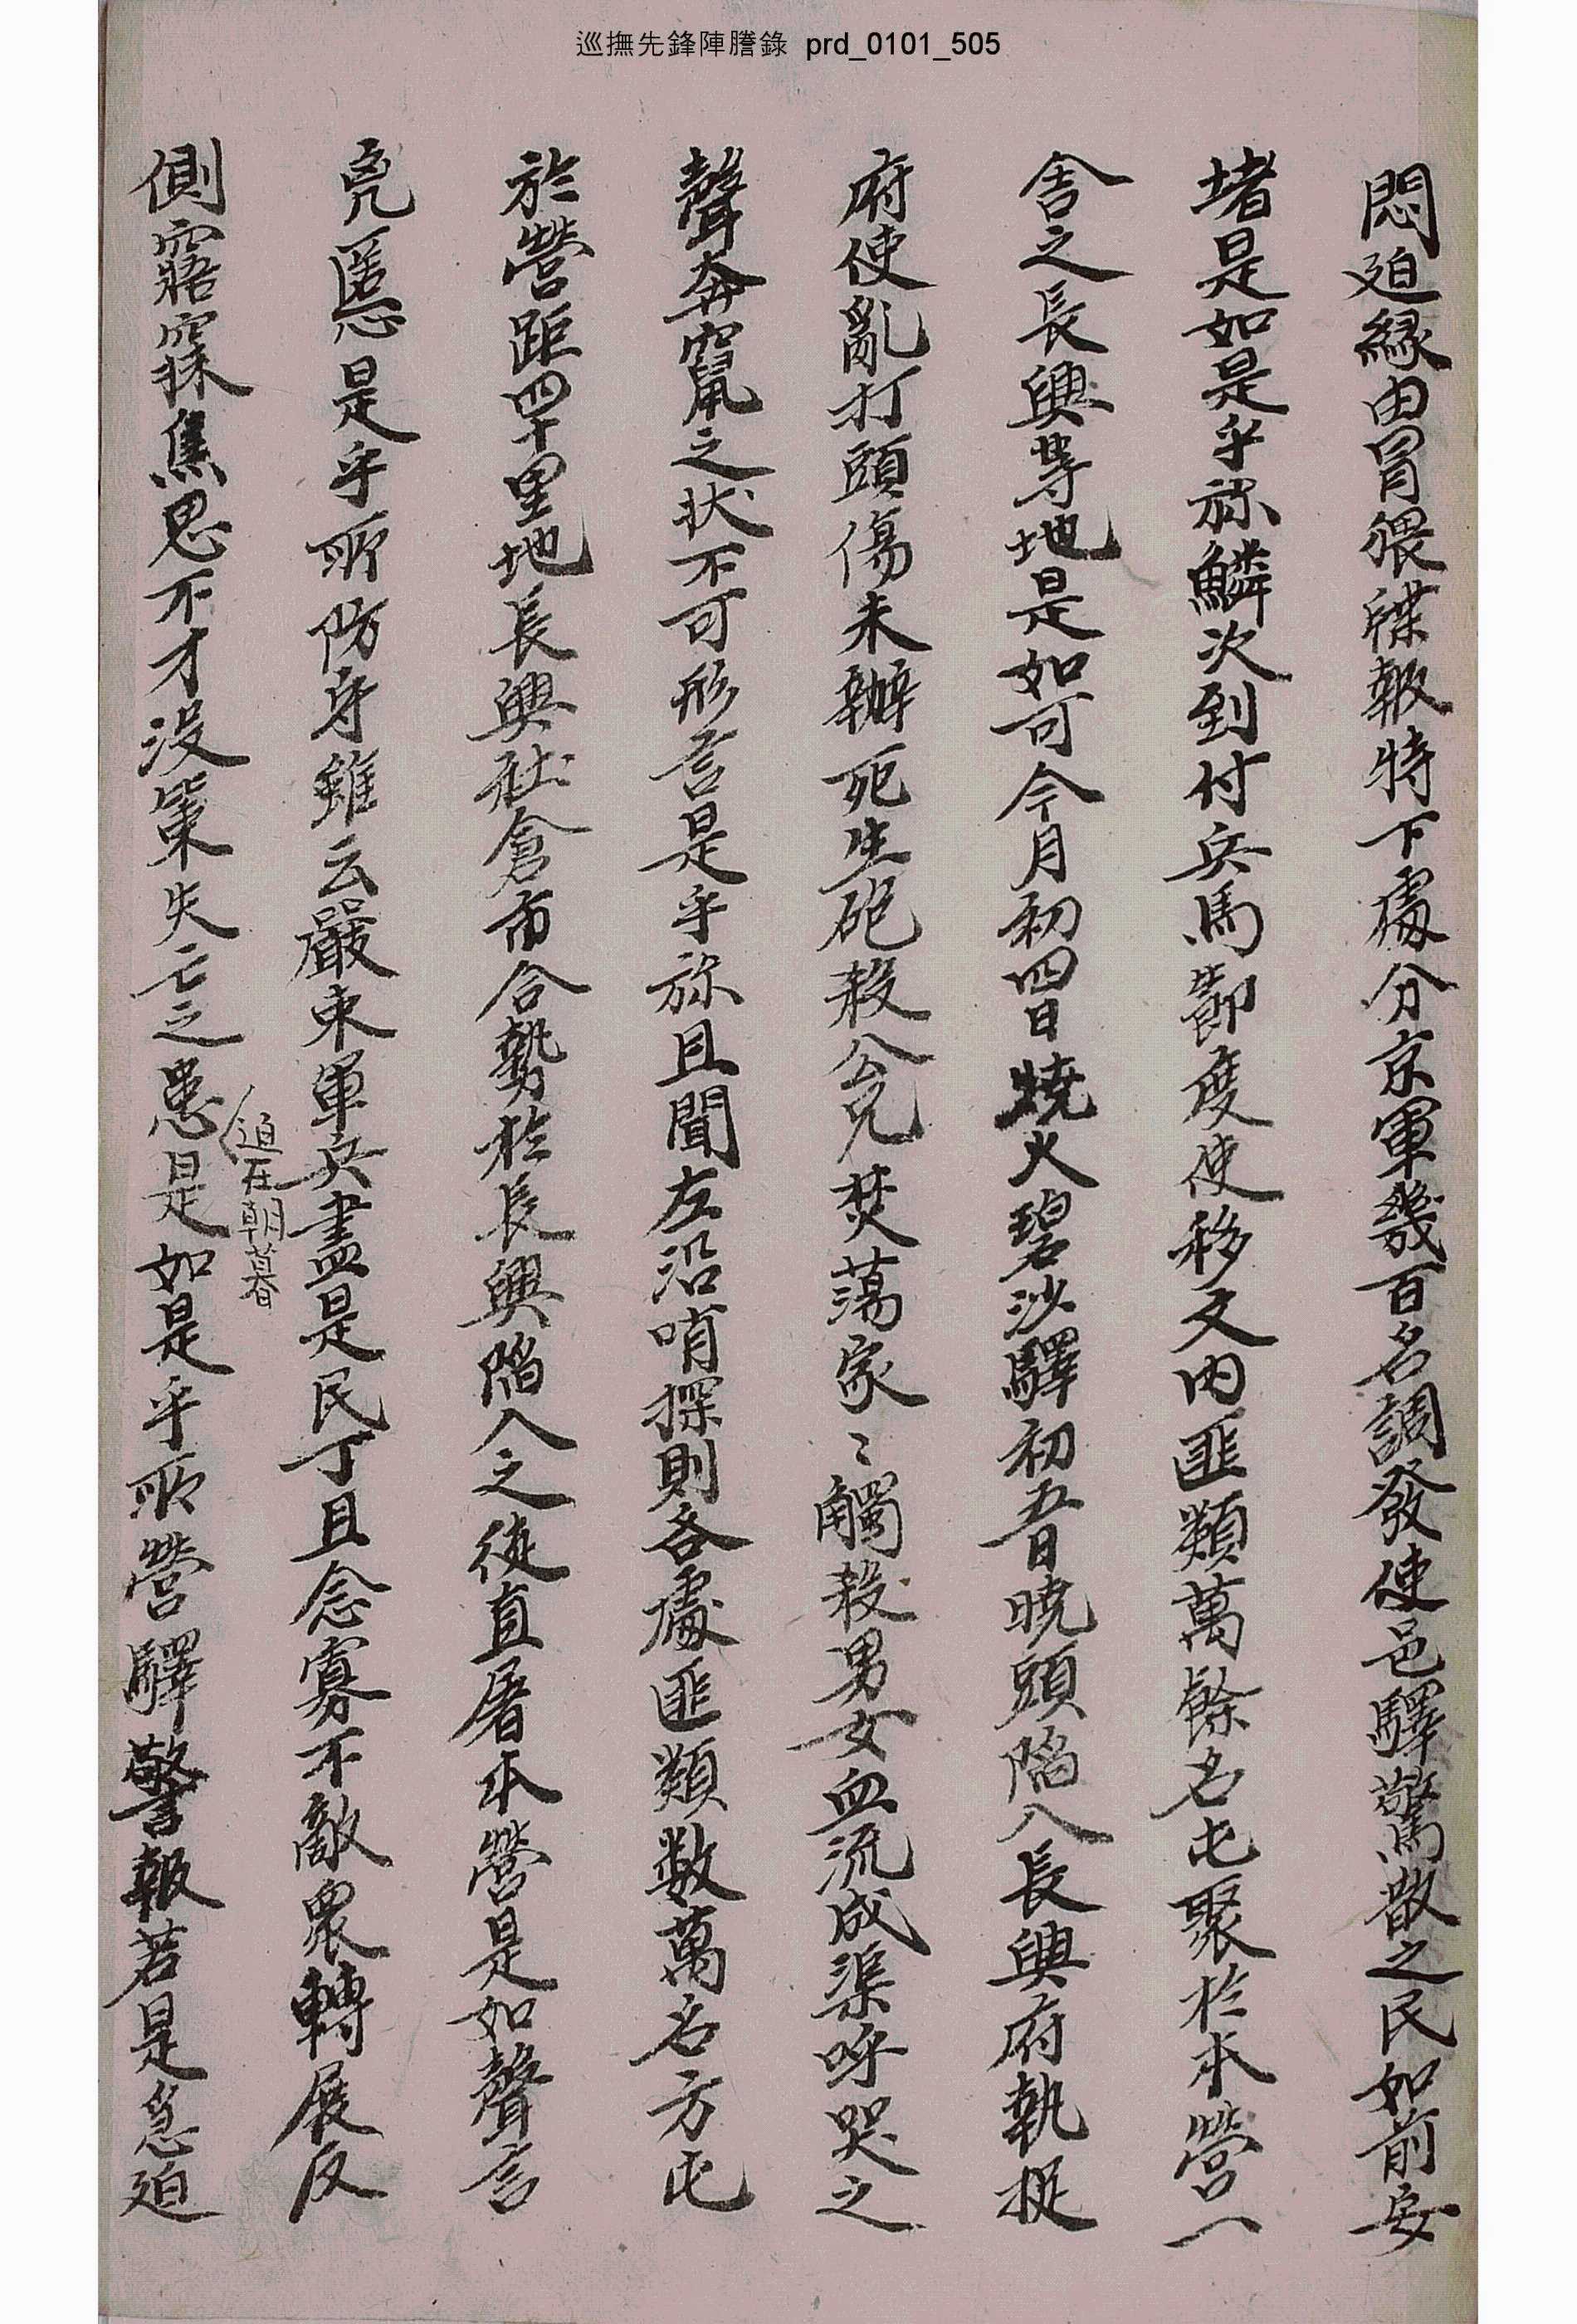 巡撫先鋒陣謄錄 prd_0101_505
悶迫緣由冒猥牒報特下處分京軍幾百名調發使邑驛驚散之民如前安
堵是如是乎祢鱗次到付兵馬節度使移文內匪類萬餘名屯聚於本營一
舍之長興等地是如可今月初四日燒火碧沙驛初五日曉頭陷入長興府執捉
府使亂打頭傷未辦死生砲殺公兄焚蕩家〻觸殺男女血流成渠呼哭之
聲奔竄之狀不可形言是乎祢且聞左沿哨探則各處匪類數萬名方屯
於營距四十里地長興社倉市合勢於長興陷入之徒直屠本營是如聲言
兇慝是乎所防守雖云嚴束軍兵盡是民丁且念寡不敵眾轉展反
側寤寐焦思不才沒策失亡之患迫在朝暮是如是乎所營驛警報若是急迫